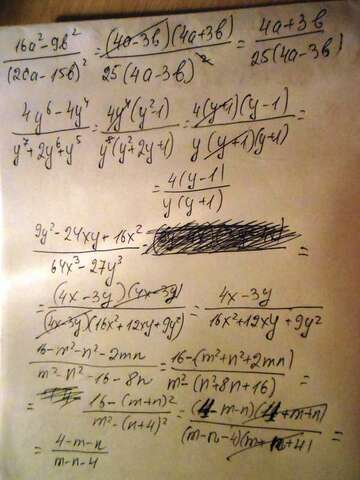 16a²-9b²/(20a-15b)² = (4a-3b)(4a+3b)/25(4a-3b)² = 4a+3b/25(4a-3b)
4y⁶-4y⁴/y⁷+2y⁶+y⁵ = 4y⁴(y²-1)/y⁵(y²+2y+1) = 4(y+1)(y-1)/y(y+1)(y+1) =
= 4(y-1)/y(y+1)
9y²-24xy+16x²/64x³-27y³ = =
= (4x-3y)(4x-3y)/(4x-3y)(16x²+12xy+9y²) = 4x-3y/16x²+12xy+9y²
16-m²-n²-2mn/m²-n²-16-8n = 16-(m²+n²+2mn)/m²-(n²+8n+16) =
= 16-(m+n)²/m²-(n+4)² = (4-m-n)(4+m+n)/(m-n-4)(m+n+4) =
= 4-m-n/m-n-4